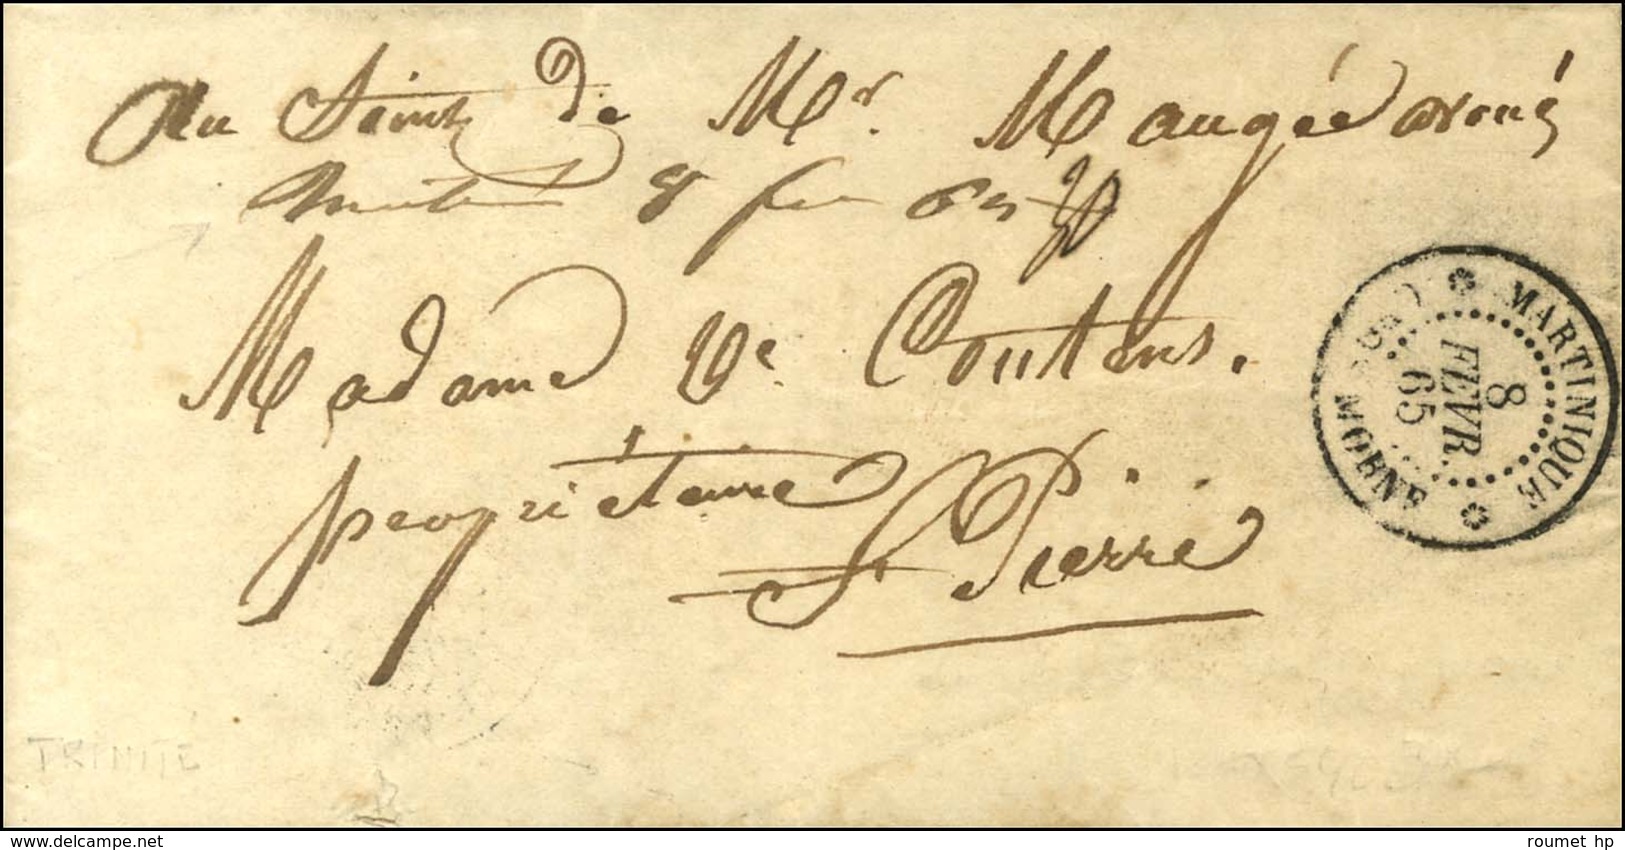 Au Soins de Mr. Maugée avoué
8 65 30
Madame Ve Coutens.
propriétaire
St Pierre
MARTINIQUE
8
FEVR.
65
MORNE
TRINITE
delcampe.net
roumet hp